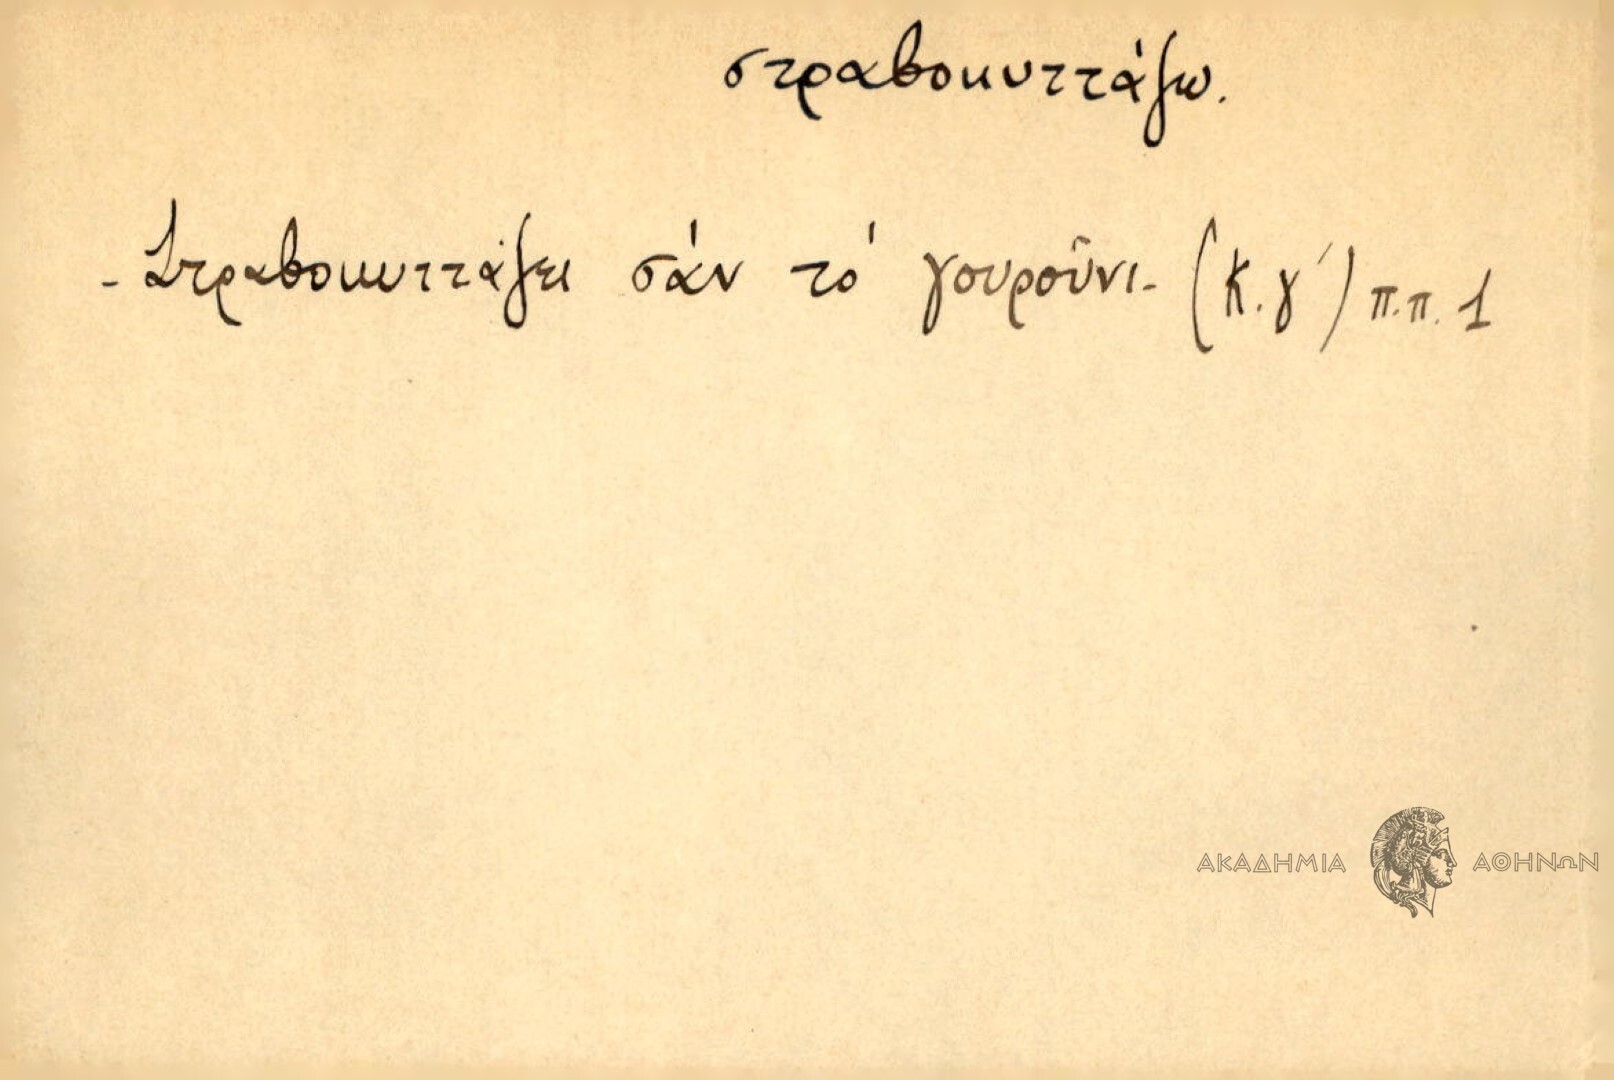 στραβοκυττάζω.
- Στραβοκυττάζει σάν τό γουροῦνι - (Κ. γ΄) π.π. 1
ΑΚΑΔΗΜΙΑ ΑΘΗΝΩΝ